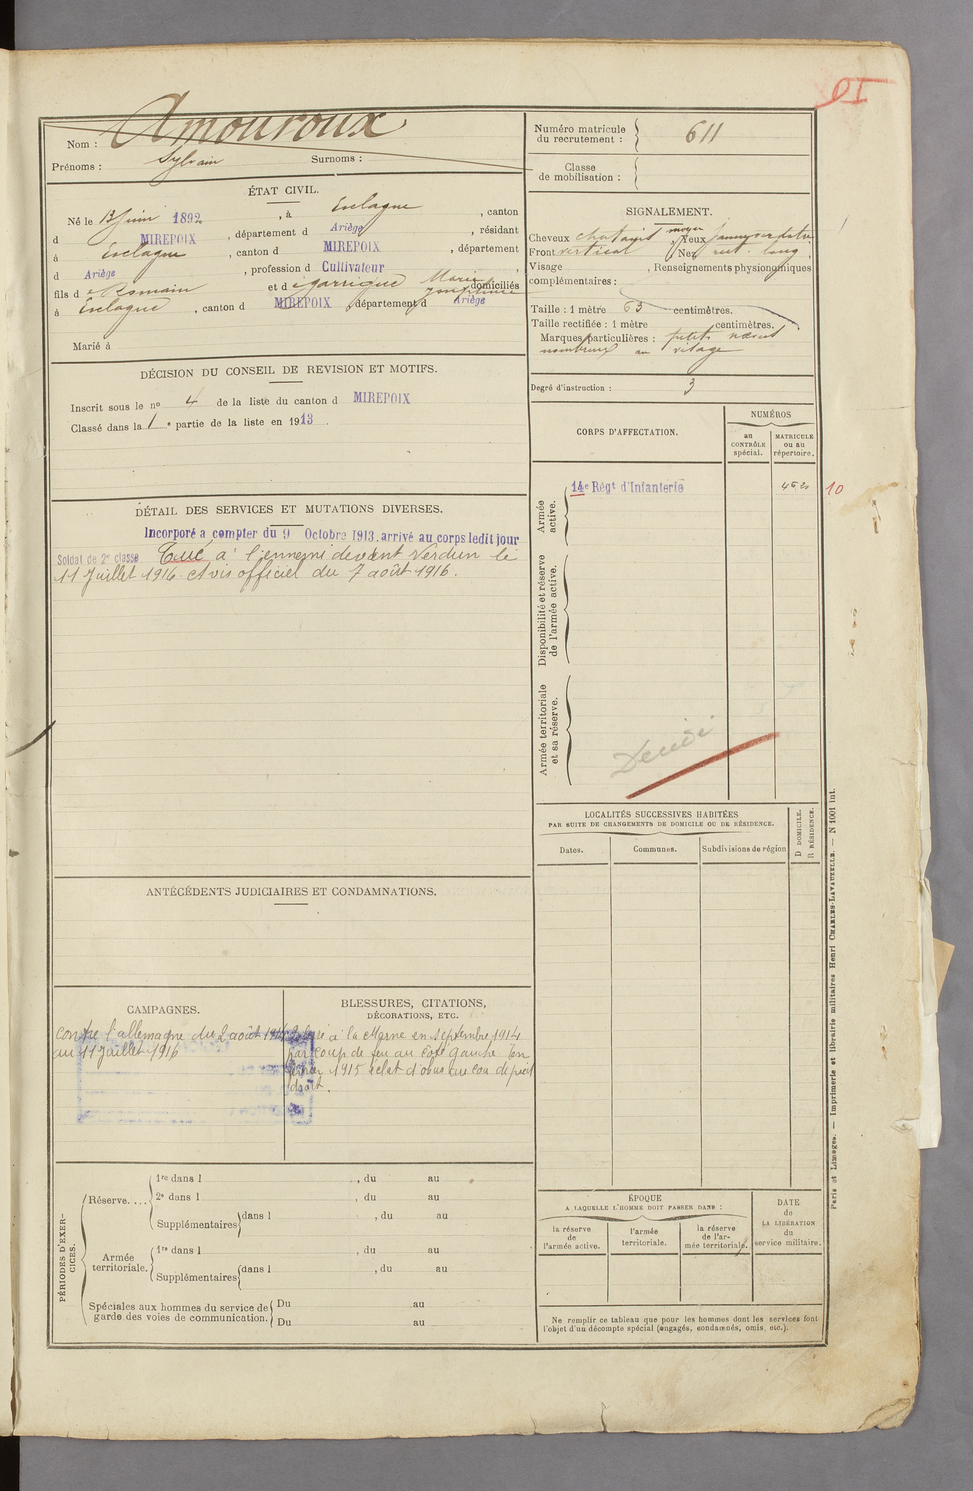 DI
Nom : Amouroux
Prénoms : Sylvain Surnoms :
Numéro matricule
du recrutement : 611
Classe
de mobilisation :
ÉTAT CIVIL.
Né le 13 Juin 1892, à Esclagne, canton
d MIREPOIX, département d Ariège, résidant
à Esclagne, canton d MIREPOIX, département
d Ariège, profession d Cultivateur,
fils de Romain et de Garrigue Marie Joséphine domiciliés
à Esclagne, canton d MIREPOIX, département d Ariège
Marié à
SIGNALEMENT.
Cheveux chatains moyen Yeux
Front vertical Nez rect. long,
Visage , Renseignements physionomiques
complémentaires :
Taille : 1 mètre 63 centimètres.
Taille rectifiée : 1 mètre centimètres.
Marques particulières : petits
nombreux au visage
Degré d'instruction : 3
DÉCISION DU CONSEIL DE REVISION ET MOTIFS.
Inscrit sous le no 4 de la liste du canton d MIREPOIX
Classé dans la 1e partie de la liste en 1913.
DÉTAIL DES SERVICES ET MUTATIONS DIVERSES.
Incorporé a compter du 9 Octobre 1913. arrivé au corps ledit jour
Soldat de 2e classe Tué à l'ennemi devant Verdun le
11 Juillet 1916. Avis officiel du 7 août 1916.
CORPS D'AFFECTATION.
NUMÉROS
au
CONTRÔLE
spécial.
MATRICULE
ou au
répertoire.
Armée
active.
14e Régt d'Infanterie
10
Disponibilité et réserve
de l'armée active.
Armée territoriale
et sa réserve.
LOCALITÉS SUCCESSIVES HABITÉES
PAR SUITE DE CHANGEMENTS DE DOMICILE OU DE RÉSIDENCE.
Dates.
Communes.
Subdivisions de région
D DOMICILE.
R RÉSIDENCE.
ANTÉCÉDENTS JUDICIAIRES ET CONDAMNATIONS.
CAMPAGNES.
Contre l'allemagne du 2 août 1914
au 11 Juillet 1916
BLESSURES, CITATIONS,
DÉCORATIONS, ETC.
Blessé à la Marne en Septembre 1914
par coup de feu au côté gauche. En
février 1915 éclat d'obus au cou de pied
droit.
PÉRIODES D'EXERCICES.
Réserve....
1re dans l , du au
2e dans l , du au
Supplémentaires dans l , du au
Armée
territoriale.
1re dans l , du au
Supplémentaires dans l , du au
Spéciales aux hommes du service de
garde des voies de communication.
Du au
Du au
ÉPOQUE
A LAQUELLE L'HOMME DOIT PASSER DANS :
la réserve
de
l'armée active.
l'armée
territoriale.
la réserve
de l'ar-
mée territoriale.
DATE
de
LA LIBÉRATION
du
service militaire.
Ne remplir ce tableau que pour les hommes dont les services font
l'objet d'un décompte spécial (engagés, condamnés, omis, etc.).
Paris et Limoges. — Imprimerie et librairie militaires Henri CHARLES-LAVAUZELLE. — N 1001 int.